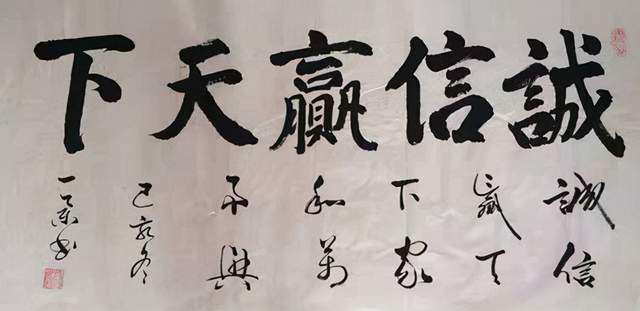 誠信贏天下
誠信
贏天
下家
和萬
事興
己亥冬
一 书